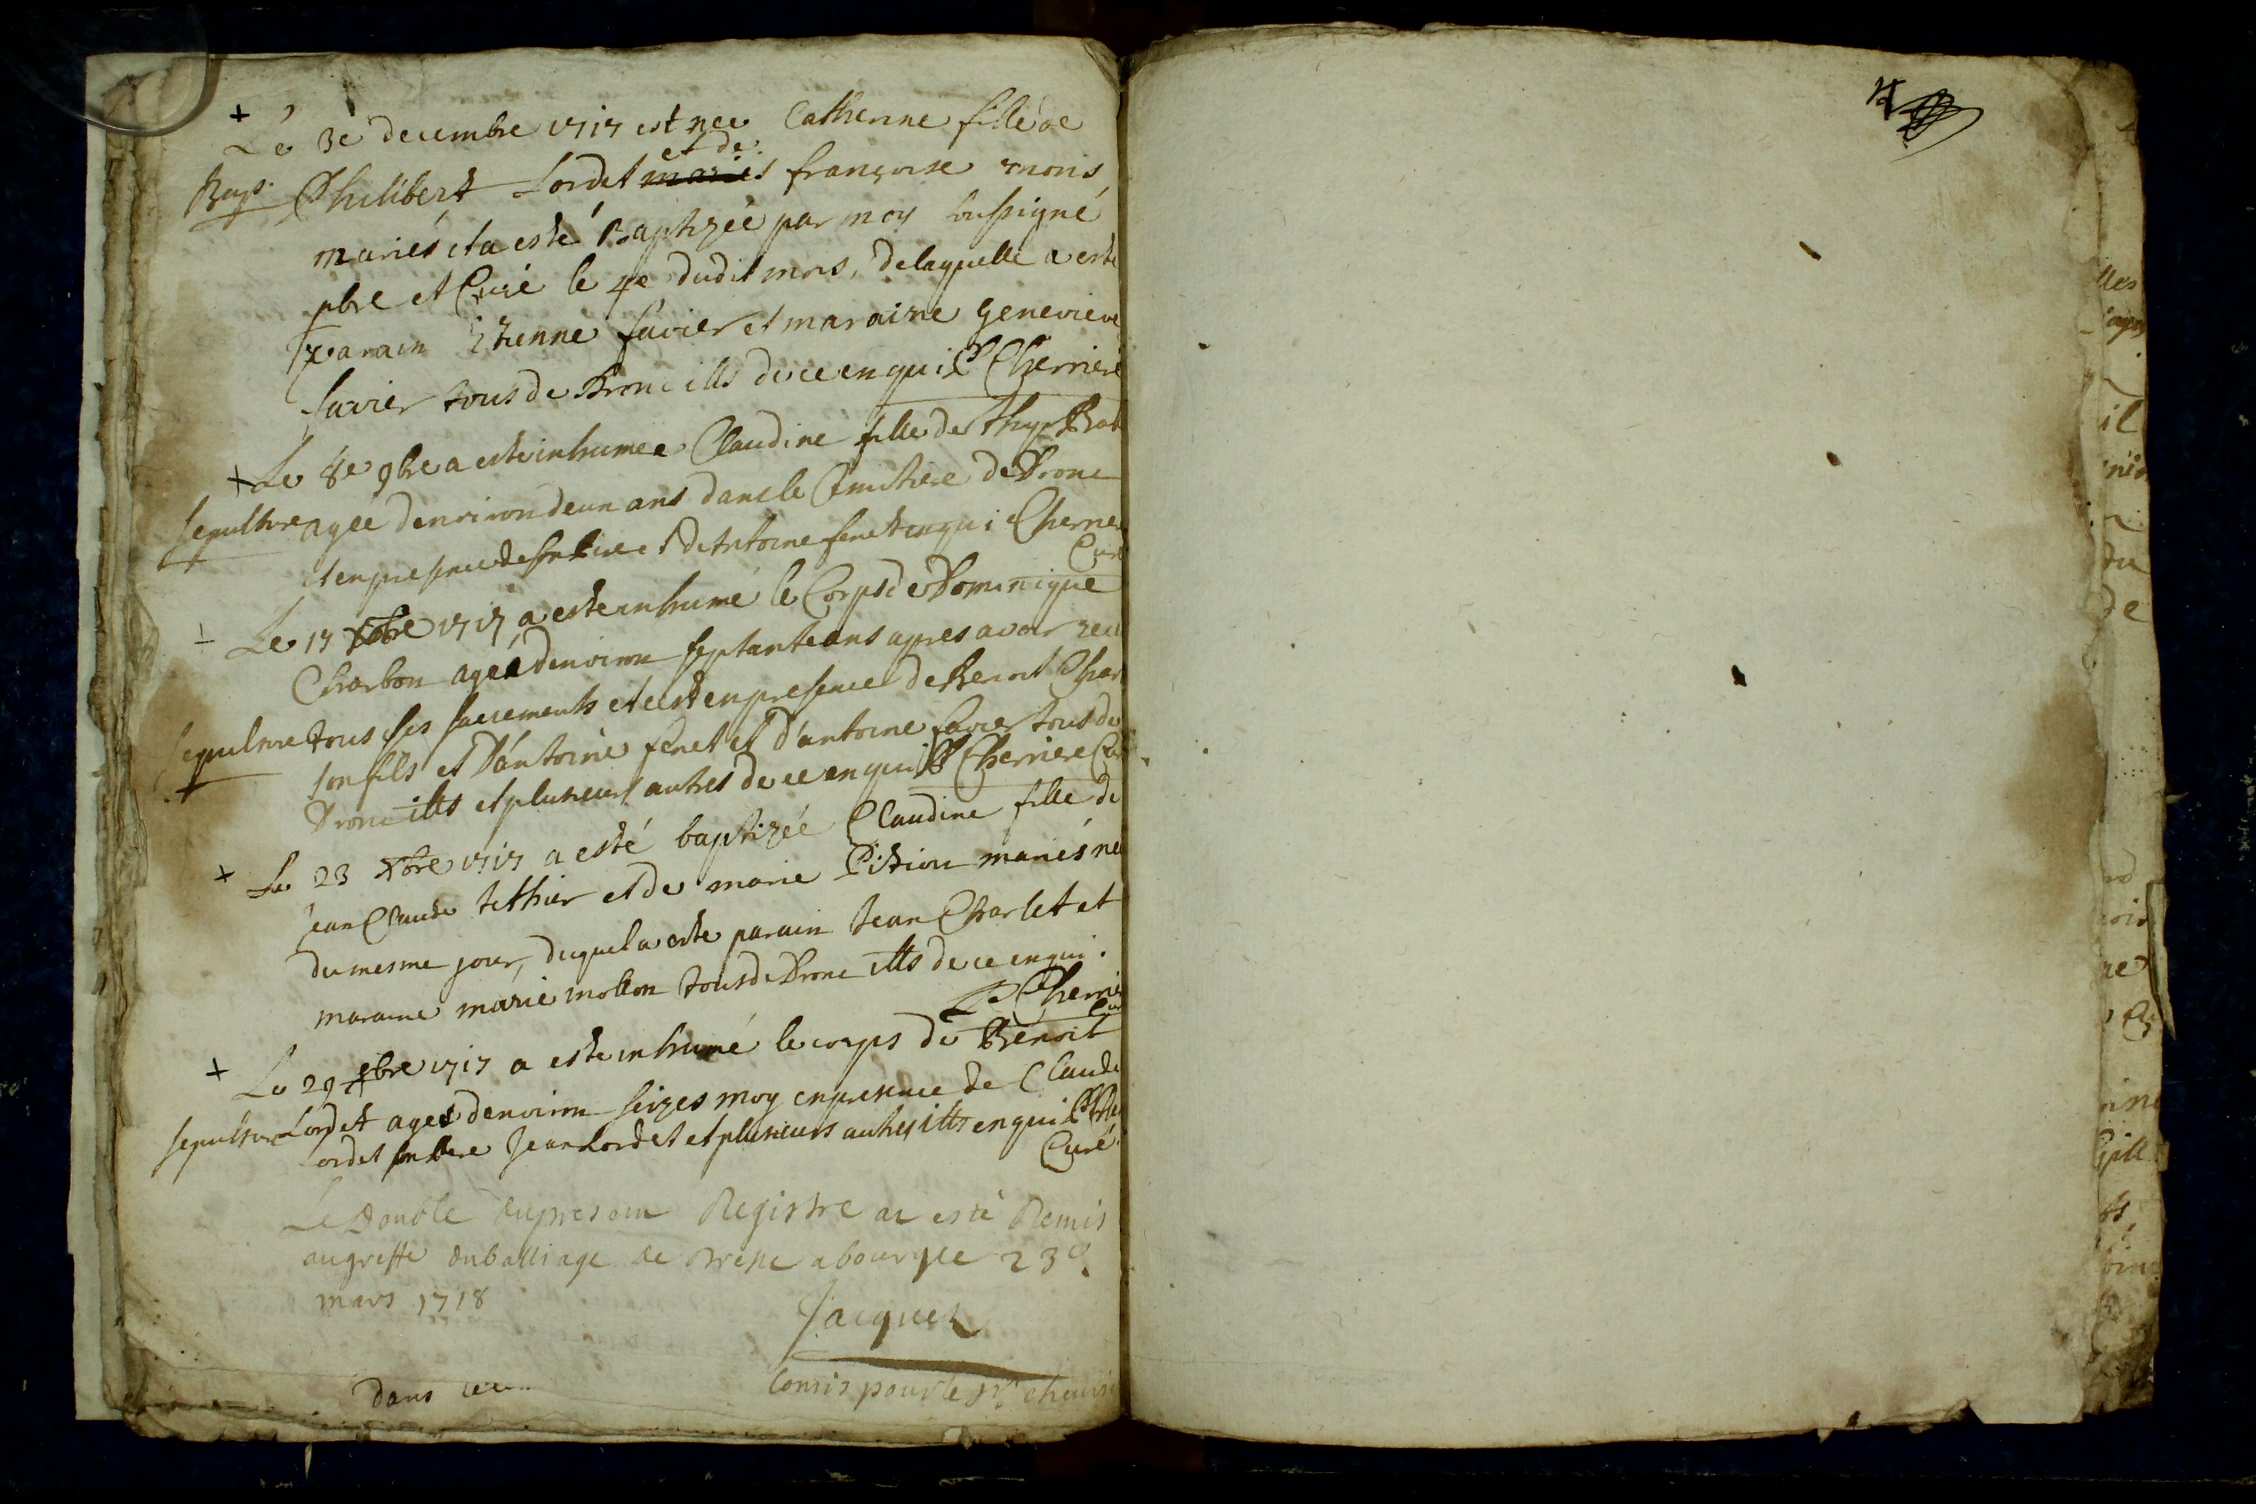 + Le 3e decembre 1717 est née Catherine fille de
Bapt. Philibert Lordet et de françoise monis
mariés et a esté Baptizée par moy soussigné
pbre et Curé le 4e dudit mois, de laquelle a esté
parain Etienne favier et maraine genevieve
favier tous de Drom illts de ce enquis P Cherriere
+ Le 8e 9bre a esté inhumee Claudine fille de
sepulture agee denviron deux ans dans le Cimetiere de Drom
et en presence de son pere et de Antoine fenet enquis Cherrier
Curé
Le 17 xbre 1717 a esté inhumé le Corps de Dominique
Charbon agé denviron septante ans apres avoir receu
sepulture tous ses sacrements et c'est en presence de Benoit Char
son fils et D'antoine fenet et d'antoine favier tous de
Drom illts et plusieurs autres de ce enquis P Cherriere Cur
+ Le 23 xbre 1717 a esté baptizée Claudine fille de
jean Claude tethier et de marie Pition mariés née
du mesme jour, duquel a esté parain Jean Charlet et
maraine marie mollon tous de Drom illts de ce enquis.
P Cherrie
Cur
+ Le 29 xbre 1717 a esté inhumé le corps de Benoit
sepulture Lordet aget denviron seizes moy en presence de Claude
Lordet son pere Jean Lordet et plusieurs autres illts enquis P Cher
Curé
Le Double du present Registre a esté Remis
au greffe du balliage de Bresse a bourg le 23e.
mars 1718
Jacquet
Commis pour le Sr.
dans